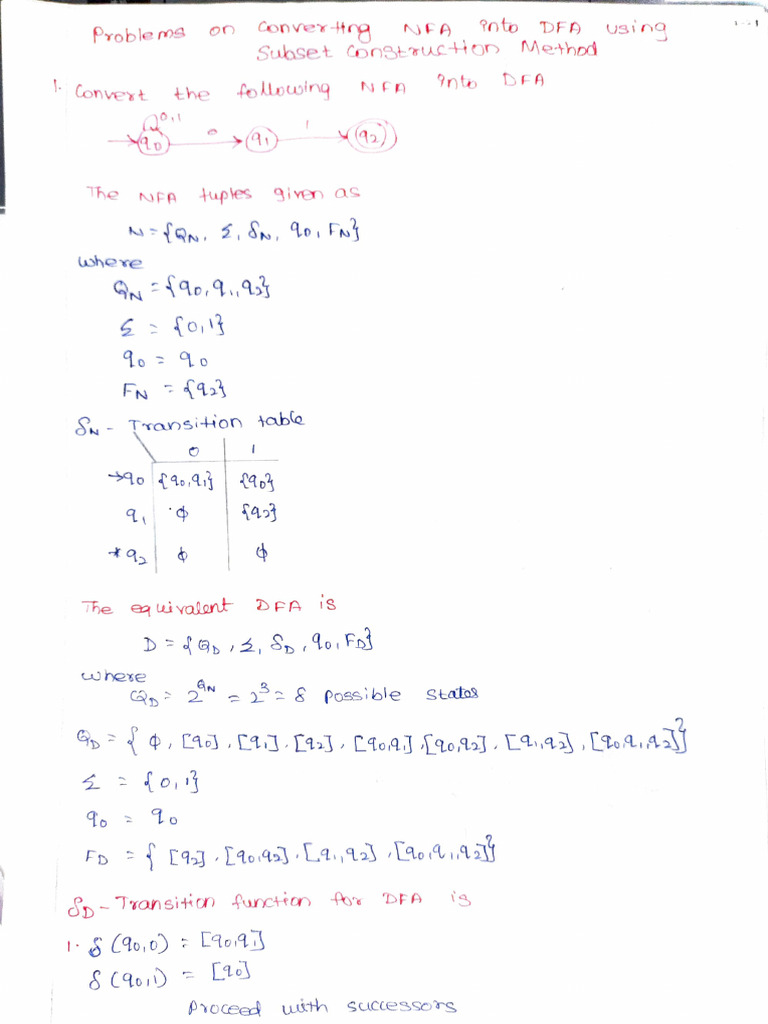 Problems on converting NFA into DFA using
Subset Construction Method
1. Convert the following NFA into DFA
0,1
q0 0 q1 1 q2
The NFA tuples given as
N = {QN, Σ, δN, q0, FN}
where
QN = {q0, q1, q2}
Σ = {0,1}
q0 = q0
FN = {q2}
δN - Transition table
0 1
→q0 {q0,q1} {q0}
q1 ϕ {q2}
*q2 ϕ ϕ
The equivalent DFA is
D = {QD, Σ, δD, q0, FD}
where
QD = 2^QN = 2^3 = 8 possible states
QD = { ϕ, [q0], [q1], [q2], [q0,q1], [q0,q2], [q1,q2], [q0,q1,q2]}
Σ = {0,1}
q0 = q0
FD = { [q2], [q0,q2], [q1,q2], [q0,q1,q2]}
δD - Transition function for DFA is
1. δ(q0,0) = [q0,q1]
δ(q0,1) = [q0]
Proceed with successors